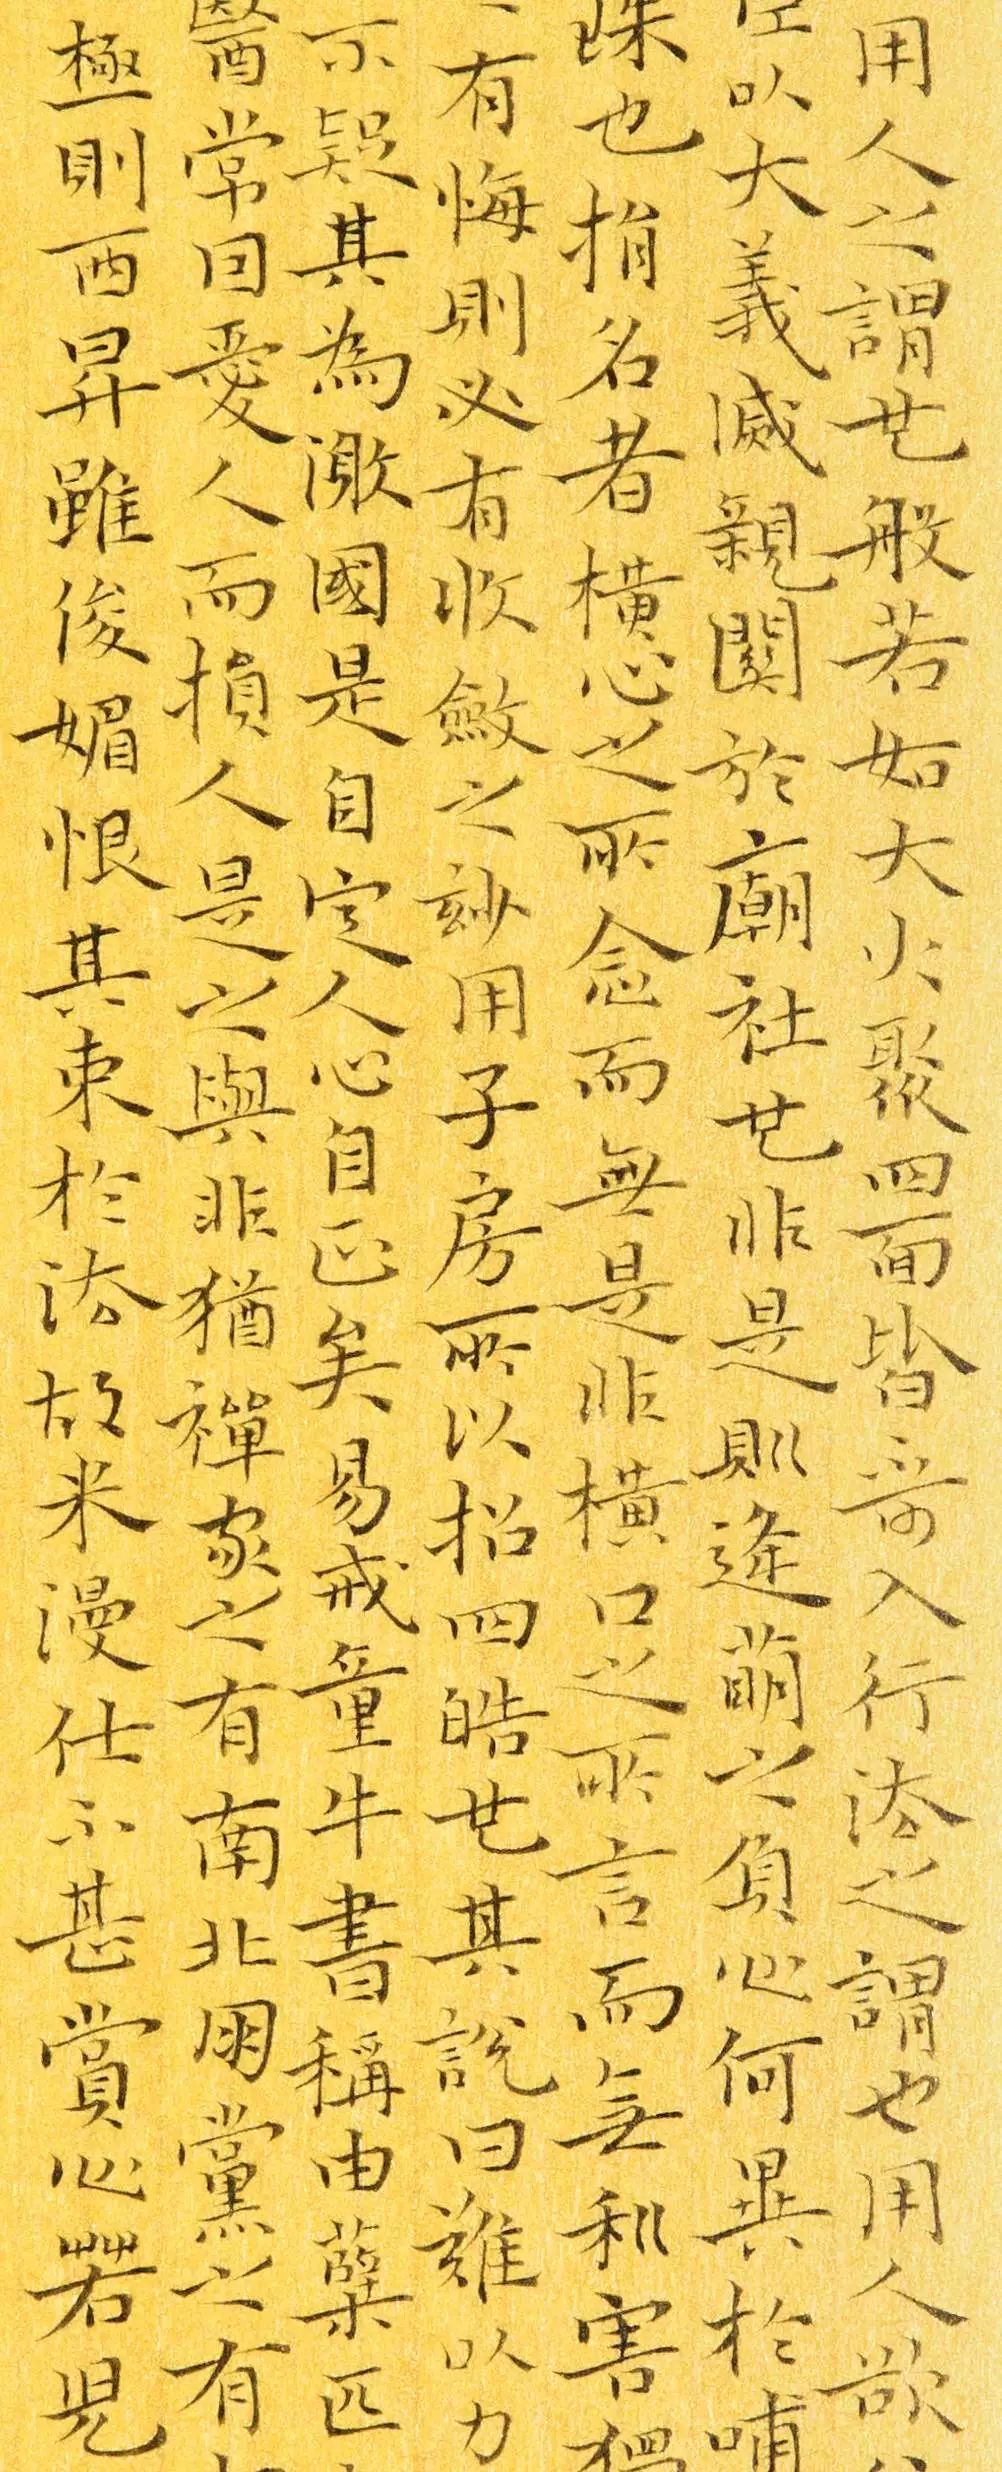 用人之謂也般若如大火聚四面皆可入行法之謂也用人欲
以大義滅親關於廟社也非是則逢萌之負心何異於哺
殊也捐名者橫心之所念而無是非橫口之所言而無利害猶
有悔則必有收斂之妙用子房所以招四皓也其說曰難以力
不疑其為激國是自定人心自正矣易戒童牛書稱由蘗匹
醫常曰愛人而損人是之與非猶禪家之有南北爾黨之有
極則西昇雖俊媚恨其束於法故米漫仕不甚賞心若兒